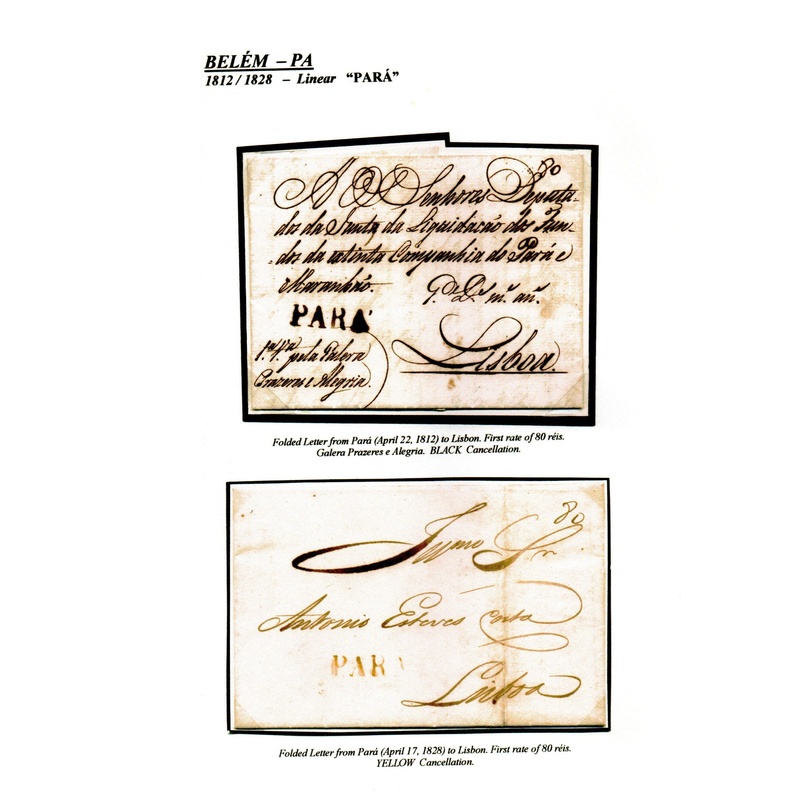 BELÉM – PA
1812 / 1828 – Linear "PARÁ"
80
A OS Senhores Deputa-
dos da Junta da Liquidacão dos Fun-
dos da extinta Companhia do Pará e
Maranhão.
G.de D.s m.s an.s
PARÁ
Lisboa.
1.a V.a pela Galera
Prazeres e Alegria.
Folded Letter from Pará (April 22, 1812) to Lisbon. First rate of 80 réis.
Galera Prazeres e Alegria. BLACK Cancellation.
80
Sr.
Antonio Esteves Costa
PARÁ
Lisboa
Folded Letter from Pará (April 17, 1828) to Lisbon. First rate of 80 réis.
YELLOW Cancellation.